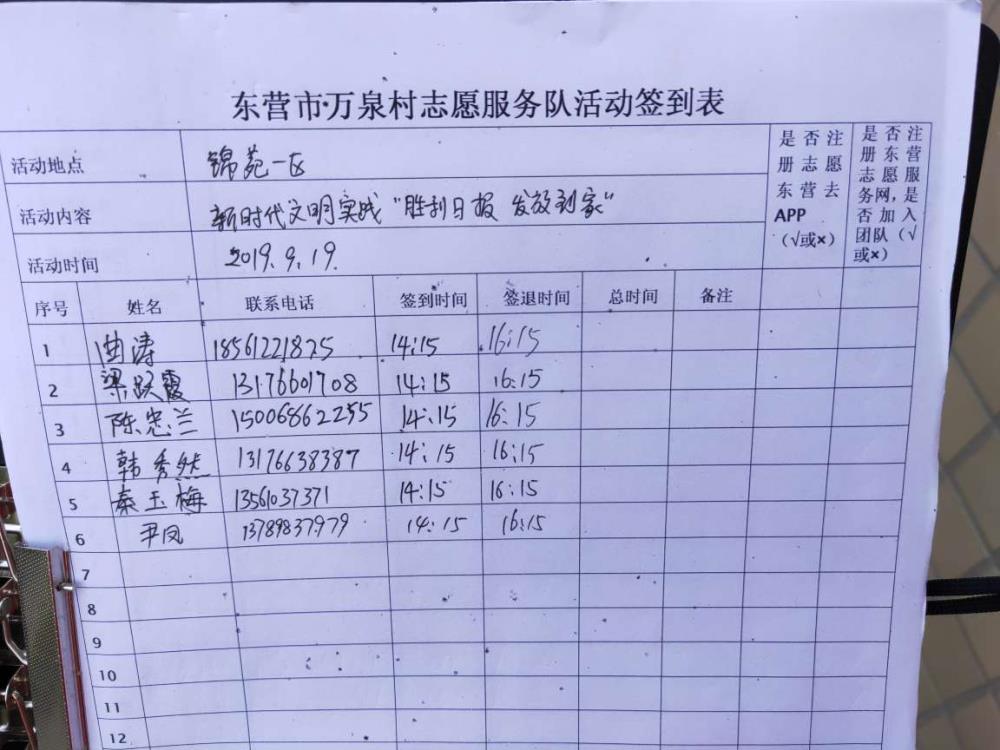 东营市万泉村志愿服务队活动签到表
活动地点 锦苑一区
活动内容 新时代文明实战“胜利日报 发放到家”
活动时间 2019.9.19.
是否注册志愿东营去APP（√或×）
是否注册东营志愿服务网，是否加入团队（√或×）
序号 姓名 联系电话 签到时间 签退时间 总时间 备注
1 曲涛 18561221875 14:15 16:15
2 梁跃霞 13176601708 14:15 16:15
3 陈忠兰 15006862255 14:15 16:15
4 韩秀然 13176638387 14:15 16:15
5 秦玉梅 13561037371 14:15 16:15
6 尹凤 13789837979 14:15 16:15
7
8
9
10
11
12